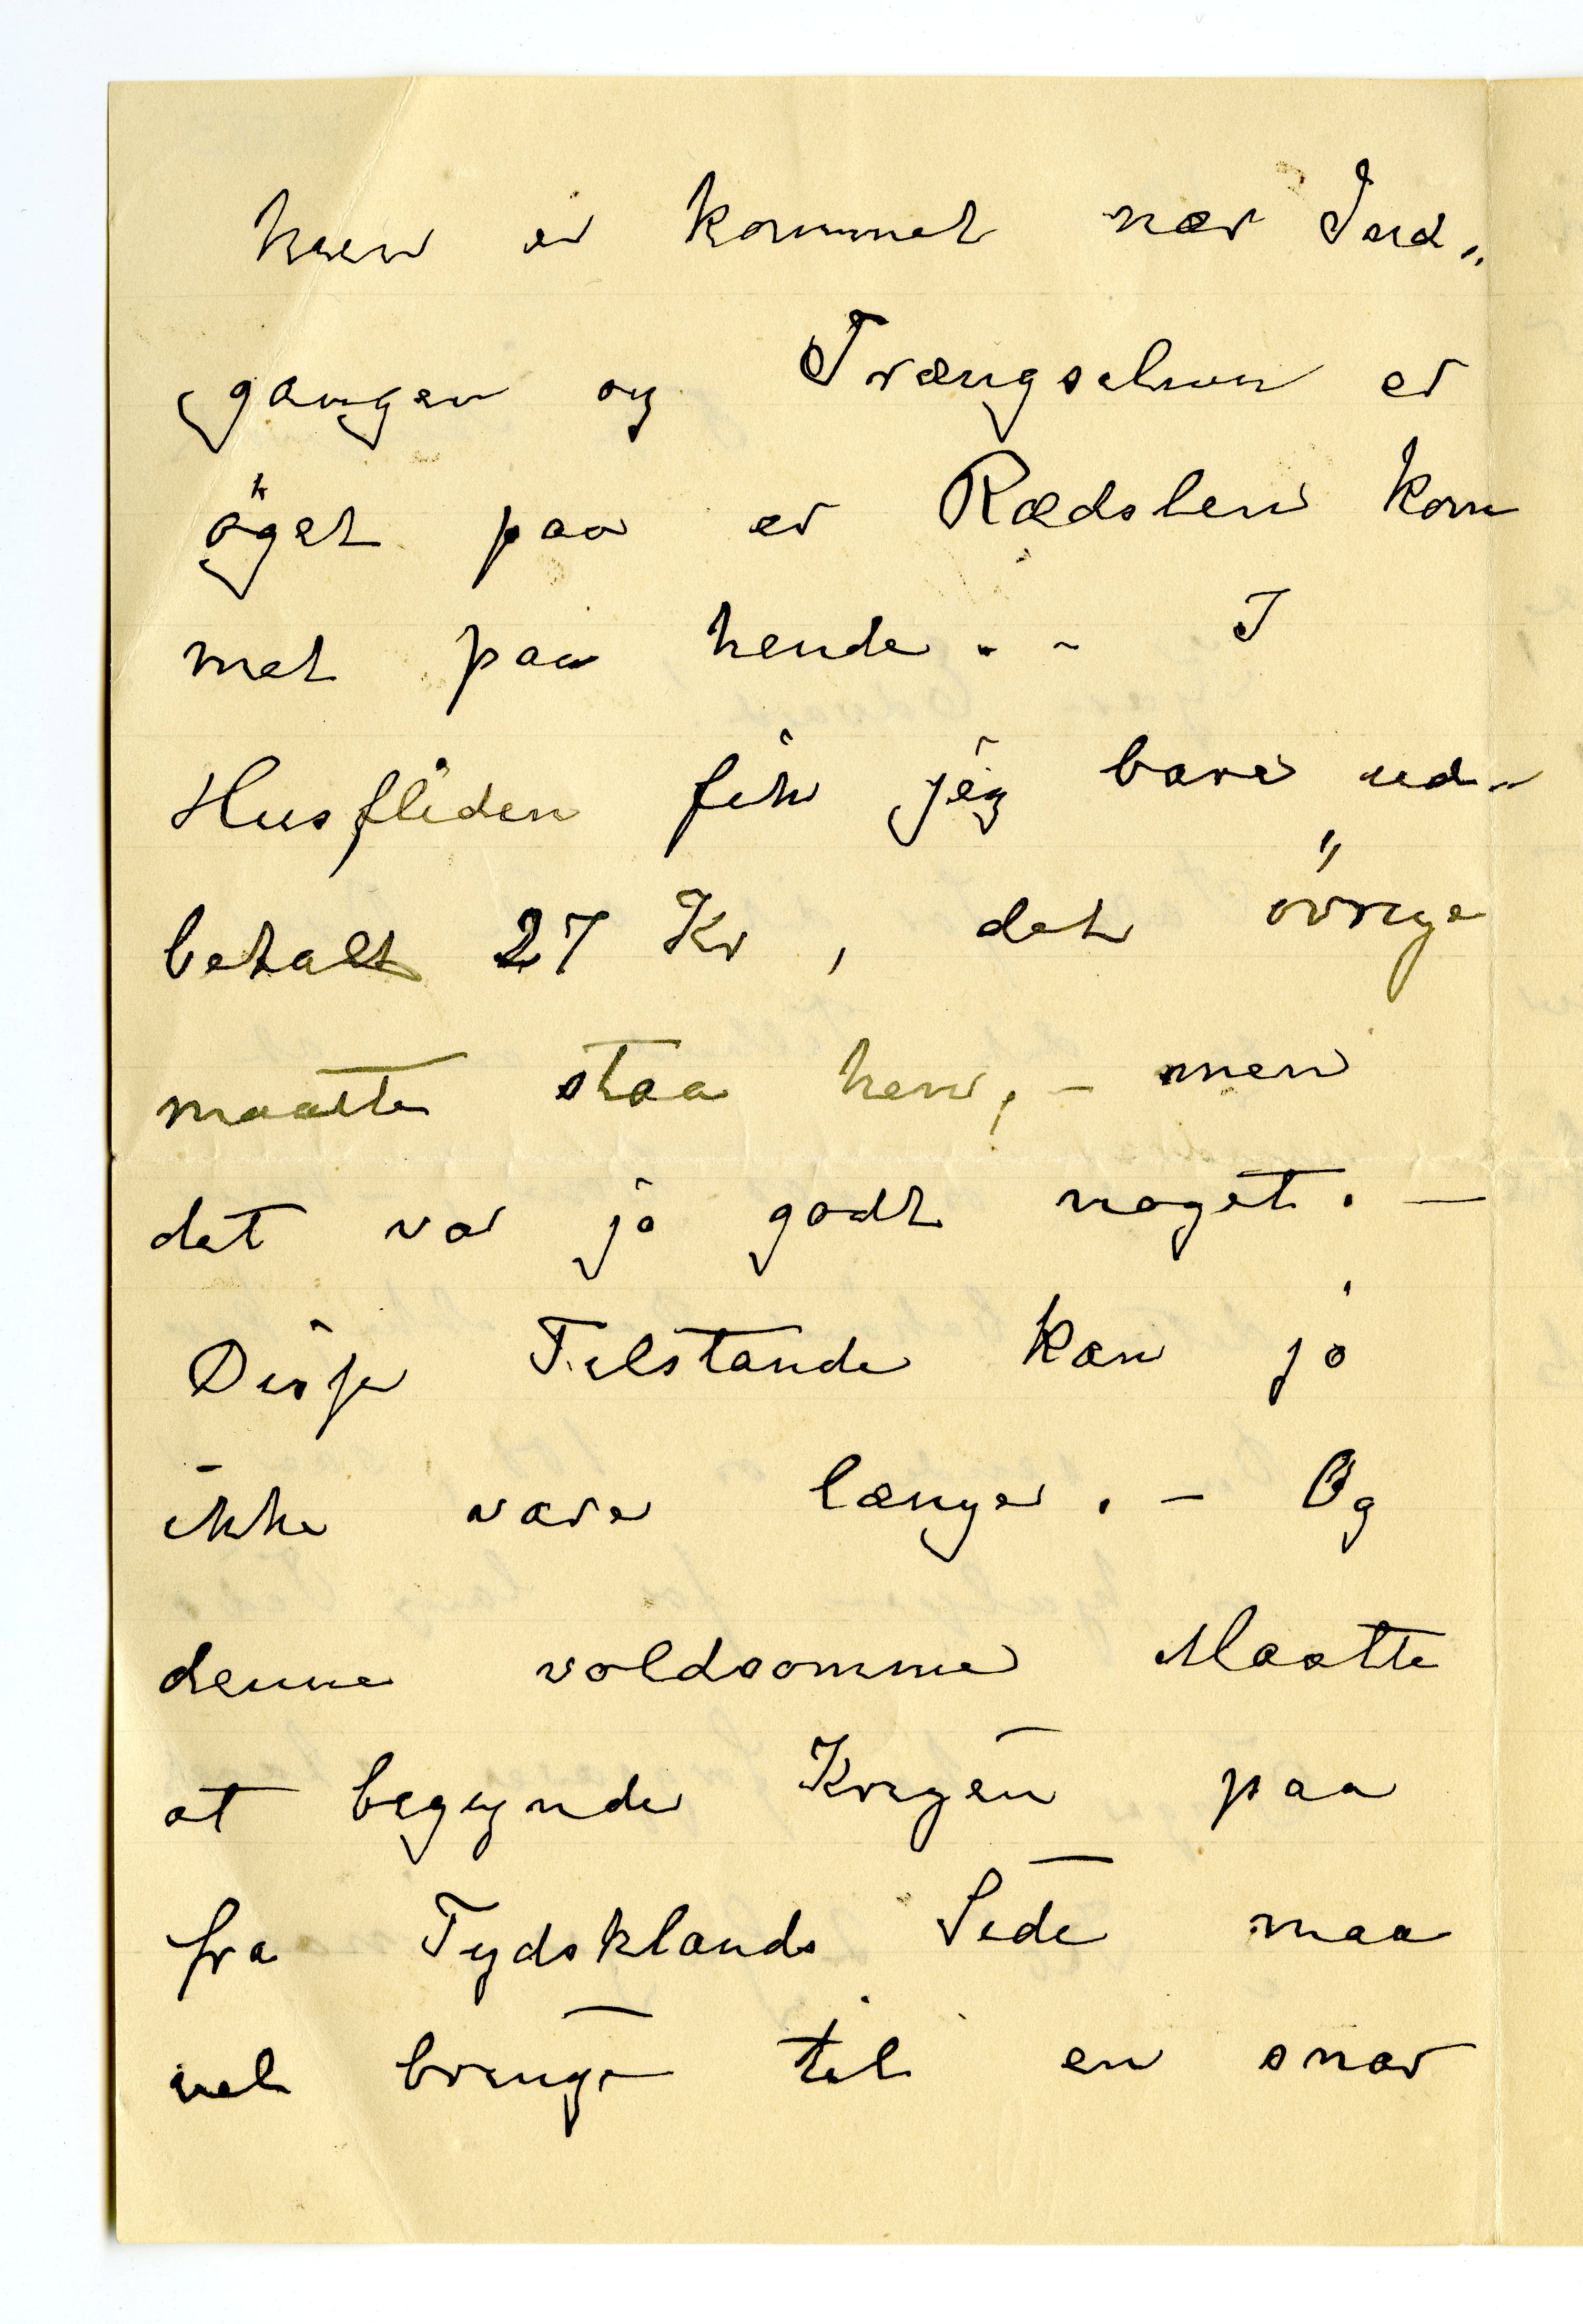 hun er kommet nær Ind„
gangen og Trængselen er
öget paa er Rædslen kom
met paa hende. - I
Husfliden fik jeg bare ud„
betalt 27 Kr, det övrige
maatte staa hen, - men
det var jo godt noget. -
Disse Tilstande kan jo
ikke vare længe. - Og
denne voldsomme Maatte
at begynde Krigen paa
fra Tydsklands Side maa
vel bringe til en snar